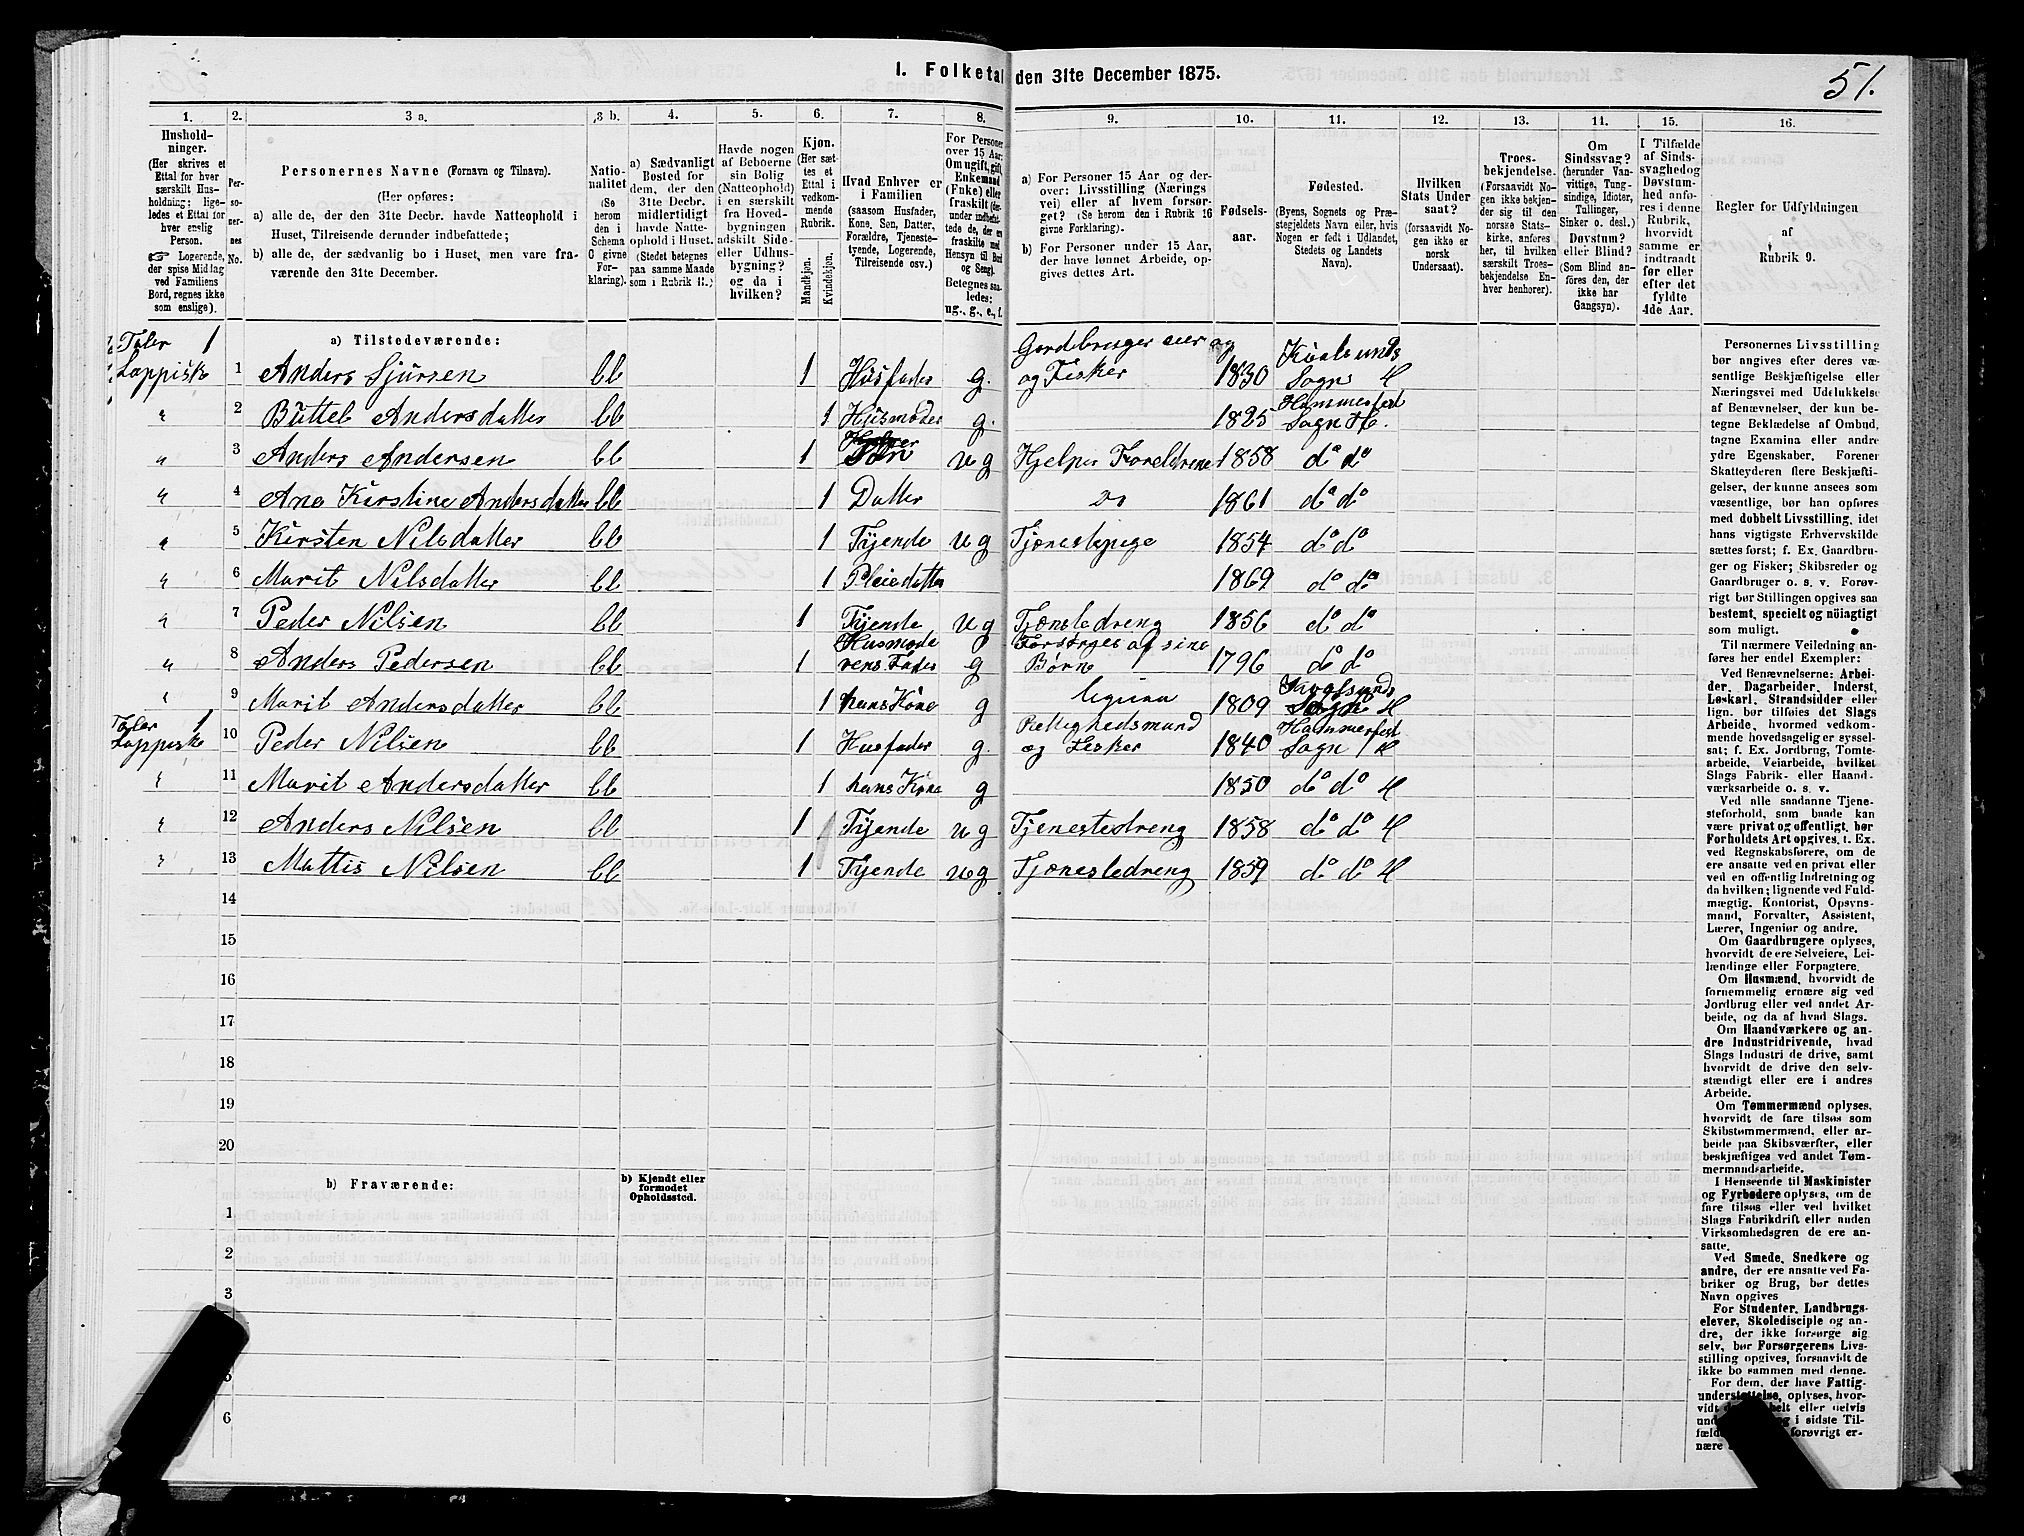 51.
I. Folketal den 31te December 1875.
1. 2. 3 a. 3 b. 4. 5. 6. 7. 8. 9. 10. 11. 12. 13. 11. 15. 16.
Hushold-
ninger.
(Her skrives et
Ettal for hver
særskilt Hus-
holdning; lige-
ledes et Ettal for
hver enslig
Person.
☞ Logerende,
der spise Middag
ved Familiens
Bord, regnes ikke
som enslige).
Per-
so-
ner-
nes
No.
Personernes Navne (Fornavn og Tilnavn).
(Her opføres:
a) alle de, der den 31te Decbr. havde Natteophold i
Huset, Tilreisende derunder indbefattede;
b) alle de, der sædvanlig bo i Huset, men vare fra-
værende den 31te December.
Natio-
nalitet
(Se
herom
den i
Schema
O givne
For-
klaring).
a) Sædvanligt
Bosted for
dem, der den
31te Decbr.
midlertidigt
havde Natte-
ophold i Huset.
(Stedet betegnes
paa samme Maade
som i Rubrik 11.)
Havde nogen
af Beboerne
sin Bolig
(Natteophold)
i en særskilt
fra Hoved-
bygningen
adskilt Side-
eller Udhus-
bygning?
og da i
hvilken?
Kjøn.
(Her sæt-
tes et
Ettal i
vedkom-
mende
Rubrik.
Mandkjøn.
Kvindekjøn.
Hvad Enhver er
i Familien
(saasom Husfader,
Kone, Søn, Datter,
Forældre, Tjeneste-
tyende, Logerende,
Tilreisende osv.)
For Personer
over 15 Aar:
Om ugift, gift,
Enkemand
(Enke) eller
fraskilt (der-
under indbefat-
tede de, der ere
fraskilte med
Hensyn til Bord
og Seng).
Betegnes saa-
ledes:
ug., g., e., f.
a) For Personer 15 Aar og der-
over: Livsstilling (Nærings
vei) eller af hvem forsør-
get? (Se herom den i Rubrik 16
givne Forklaring).
b) For Personer under 15 Aar,
der have lønnet Arbeide, op-
gives dettes Art.
Fødsels-
aar.
Fødested.
(Byens, Sognets og Præ-
stegjeldets Navn eller, hvis
Nogen er født i Udlandet,
Stedets og Landets
Navn).
Hvilken
Stats Under
saat?
(forsaavidt No-
gen ikke er
norsk
Undersaat).
Troes-
bekjendelse.
(Forsaavidt No-
gen ikke bekjen-
der sig til den
norske Stats-
kirke, anføres
her, til hvilken
særskilt Troes-
bekjendelse En-
hver henhorer).
Om
Sindssvag?
(herunder Van-
vittige, Tung-
sindige, Idioter,
Tullinger,
Sinker o. desl.)
Døvstum?
eller Blind?
(Som Blind an-
føres den, der
ikke har
Gangsyn).
I Tilfælde
af Sinds-
svaghedog
Døvstum-
hed anfø-
res i denne
Rubrik,
hvorvidt
samme er
indtraadt
før eller
efter det
fyldte
4de Aar.
Regler for Udfyldningen
af
Rubrik 9.
a) Tilstedeværende:
Taler 1
Lappisk 1 Anders Sjursen bb 1 Husfader g. Gardsbruger og Fisker 1830 Kvalsunds Sogn H
" 2 Büttel Andersdatter bb 1 Husmoder g. 1825 Hammerfest Sogn H.
" 3 Anders Andersen bb 1 Søn ug Hjelper Foreldrene 1858 do do
" 4 Ane Kirstine Andersdatter bb 1 Datter do 1861 do do
" 5 Kirsten Nilsdatter bb 1 Tyende ug Tjenestepige 1854 do do
" 6 Marit Nilsdatter bb 1 Pleiedatter 1869 do do
" 7 Peder Nilsen bb 1 Tyende ug Tjenstedreng 1856 do do
" 8 Anders Pedersen bb 1 Husmoderens Fader g Forsørges af sine Børne 1796 do do
" 9 Marit Andersdatter bb 1 hans Kone g 1809 Kvalsunds Sogn H
Taler 1
Lappiske 10 Peder Nilsen bb 1 Husfader g. Rettighedsmand og Fisker 1840 Hammerfest Sogn H
" 11 Marit Andersdatter bb 1 hans Kone g 1850 do do H
" 12 Anders Nilsen bb 1 Tyende ug Tjenestedreng 1858 do do H
" 13 Mattis Nilsen bb 1 Tyende ug Tjenestedreng 1859 do do H
14
15
16
17
18
19
20
b) Fraværende:
b) Kjendt eller
formodet
Opholdssted.
1
2
3
6
Personernes Livsstilling
bør angives efter deres væ-
sentlige Beskjæftigelse eller
Næringsvei med Udelukkelse
af Benævnelser, der kun be-
tegne Beklædelse af Ombud,
tagne Examina eller andre
ydre Egenskaber. Forener
Skatteyderen flere Beskjæfti-
gelser, der kunne ansees som
væsentlige, bør han opføres
med dobbelt Livsstilling, idet
hans vigtigste Erhvervskilde
sættes først; f. Ex. Gaardbru-
ger og Fisker; Skibsreder og
Gaardbruger o. s. v. Forøv-
rigt bør Stillingen opgives saa
bestemt, specielt og nöiagtigt
som muligt.
Til nærmere Veiledning an-
føres her endel Exempler:
Ved Benævnelserne: Arbei-
der, Dagarbeider, Inderst,
Løskarl, Strandsidder eller
lign. bør tilføies det Slags
Arbeide, hvormed vedkom-
mende hovedsagelig er syssel-
sat; f. Ex. Jordbrug, Tomte-
arbeide, Veiarbeide, hvilket
Slags Fabrik- eller Haand-
værksarbeide o. s. v.
Ved alle saadanne Tjene-
steforhold, som baade kan
være privat og offentligt, bør
Forholdets Art opgives, f. Ex.
ved Regnskabsførere, om de
ere ansatte ved en privat eller
ved en offentlig Indretning og
da hvilken; lignende ved Fuld-
mægtig, Kontorist, Opsyns-
mand, Forvalter, Assistent,
Lærer, Ingeniør og andre.
Om Gaardbrugere oplyses,
hvorvidt de ere Selveiere, Lei-
lændinge eller Forpagtere.
Om Husmænd, hvorvidt de
fornemmelig ernære sig ved
Jordbrug eller ved andet Ar-
beide, og da af hvad Slags.
Om Haandværkere og an-
dre Industridrivende, hvad
Slags Industri de drive, samt
hvorvidt de drive den selv-
stændigt eller ere i andres
Arbeide.
Om Tømmermænd oplyses,
hvorvidt de fare tilsøs som
Skibstømmermænd, eller ar-
beide paa Skibsværfter, eller
beskjæftiges ved andet Tøm-
mermandsarbeide.
I Henseende til Maskinister
og Fyrbødere oplyses, om de
fare tilsøs eller ved hvilket
Slags Fabrikdrift eller anden
Virksomhedsgren de ere an-
satte.
Ved Smede, Snedkere og
andre, der ere ansatte ved Fa-
briker og Brug, bør dettes
Navn opgives
For Studenter, Landbrugs-
elever, Skoledisciple og an-
dre, der ikke forsørge sig
selv, bør Forsørgerens Livs-
stilling opgives, forsaavidt de
ikke bo sammen med denne.
For dem, der have Fattig-
understøttelse, oplyses, hvor-